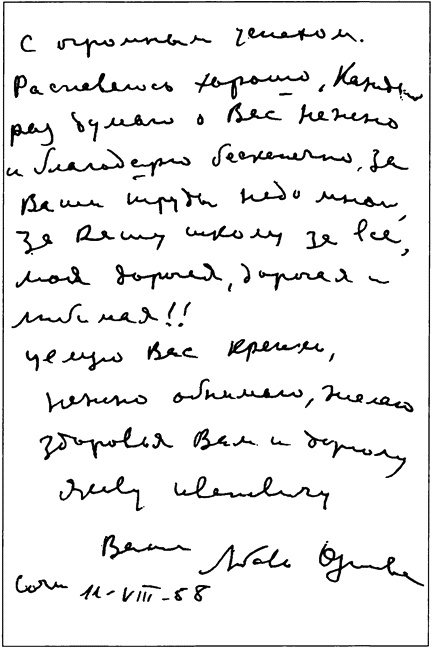 с огромным успехом.
Распевалось хорошо, Каждый
раз думаю о Вас нежно
и благодарно бесконечно, за
Ваши труды надо мной,
за Вашу школу за всё,
моя дорогая, дорогая и
любимая!!
Целую Вас крепко,
нежно обнимаю, желаю
здоровья Вам и дорогому
Якову Ивановичу
Ваша
Сочи 11-VIII-58